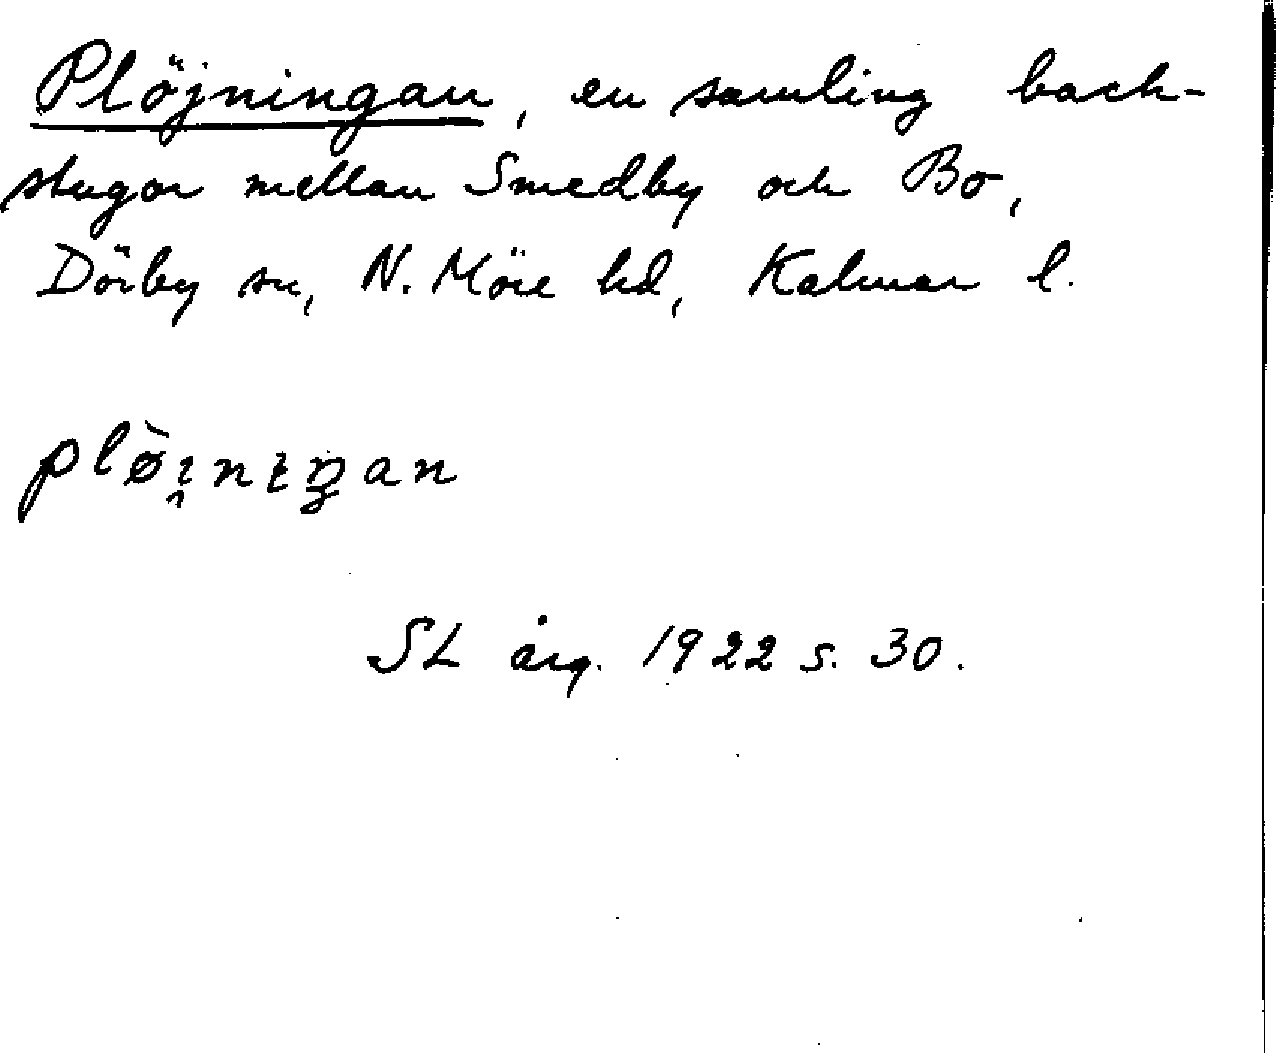 Plöjningan, en samling back-
stugor mellan Smedby och Bo,
Dörby sn, N. Möre hd, Kalmar l.
plø̀ı̯nıŋan
SL årg. 1922 s. 30.